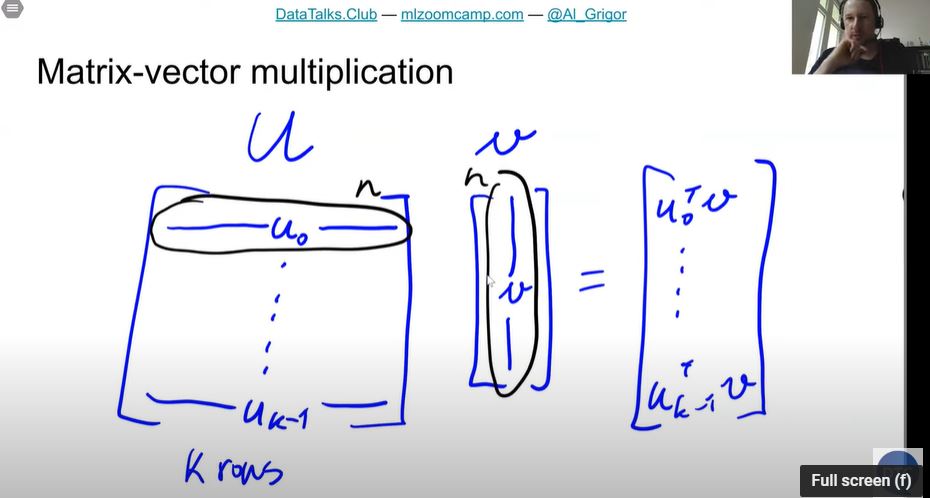 DataTalks.Club — mlzoomcamp.com — @Al_Grigor
Matrix-vector multiplication
U v
n n
u₀ v = u₀ᵀv
uₖ₋₁ uₖ₋₁ᵀv
K rows
Full screen (f)